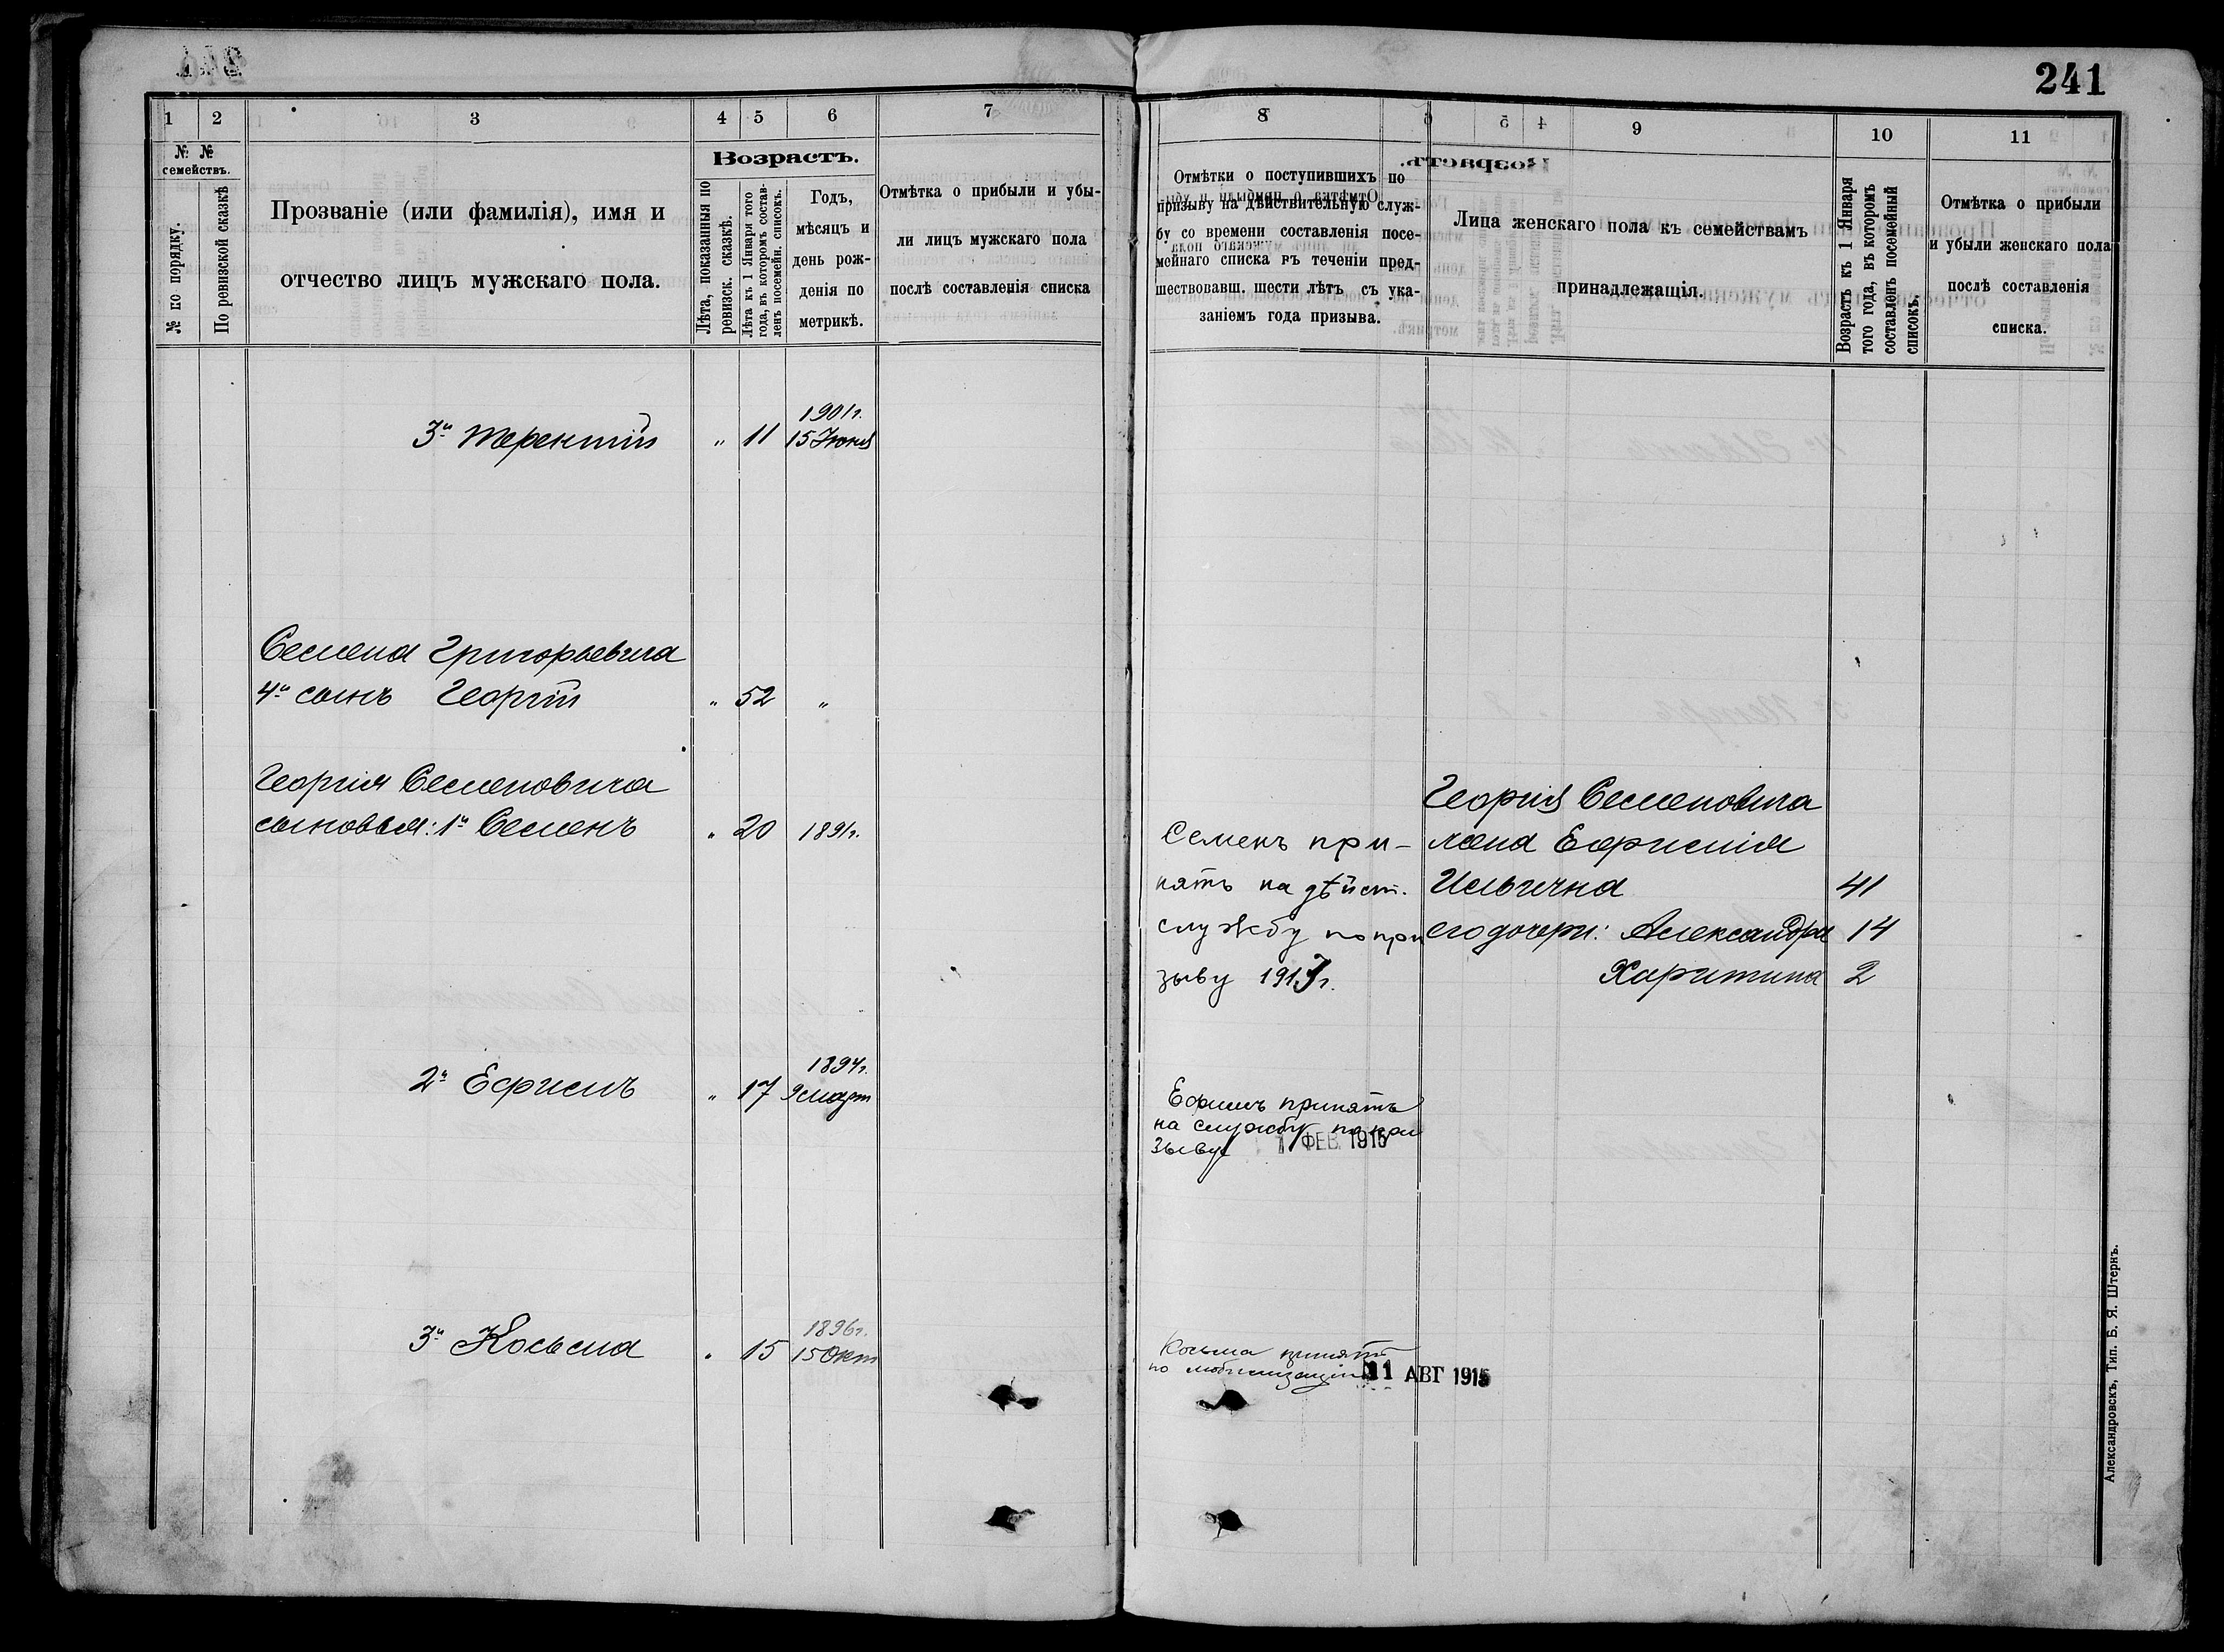 241
1 2 3 4 5 6 7
№ №
семействъ.
№ по порядку.
По ревизской сказкѣ
Прозваніе (или фамилія), имя и
отчество лицъ мужскаго пола.
Возрастъ.
Лѣта, показанныя по
ревизск. сказкѣ.
Лѣта къ 1 Января того
года, въ которомъ состав-
ленъ посемейн. списокъ.
Годъ,
мѣсяцъ и
день рож-
денія по
метрикѣ.
Отмѣтка о прибыли и убы-
ли лицъ мужскаго пола
послѣ составленія списка
8 9 10 11
Отмѣтки о поступившихъ по
призыву на дѣйствительную служ-
бу со времени составленія посе-
мейнаго списка въ теченіи пред-
шествовавш. шести лѣтъ съ ука-
заніемъ года призыва.
Лица женскаго пола къ семействамъ
принадлежащія.
Возрастъ къ 1 Января
того года, въ которомъ
составленъ посемейный
списокъ.
Отмѣтка о прибыли
и убыли женскаго пола
послѣ составленія
списка.
1901г.
3й Терентій " 11 15 Июня
Семена Григорьевича
4й сынъ Георгій " 52 "
Георгія Семеновича
сыновья: 1й Семенъ " 20 1891г.
1894г.
2й Ефимъ " 17 9 март
1896г.
3й Косьма " 15 15 Окт
Семенъ при-
нятъ на дѣйст.
службу по при
зыву 191 г.
Ефимъ принятъ
на службу по при
зыву 1 ФЕВ 1915
Косьма принятъ
по мобилизаціи 11 АВГ 1915
Георгія Семеновича
жена Ефимія
Ильична 41
его дочери: Александра 14
Харитина 2
Александровскъ, Тип. Б. Я. Штернъ.